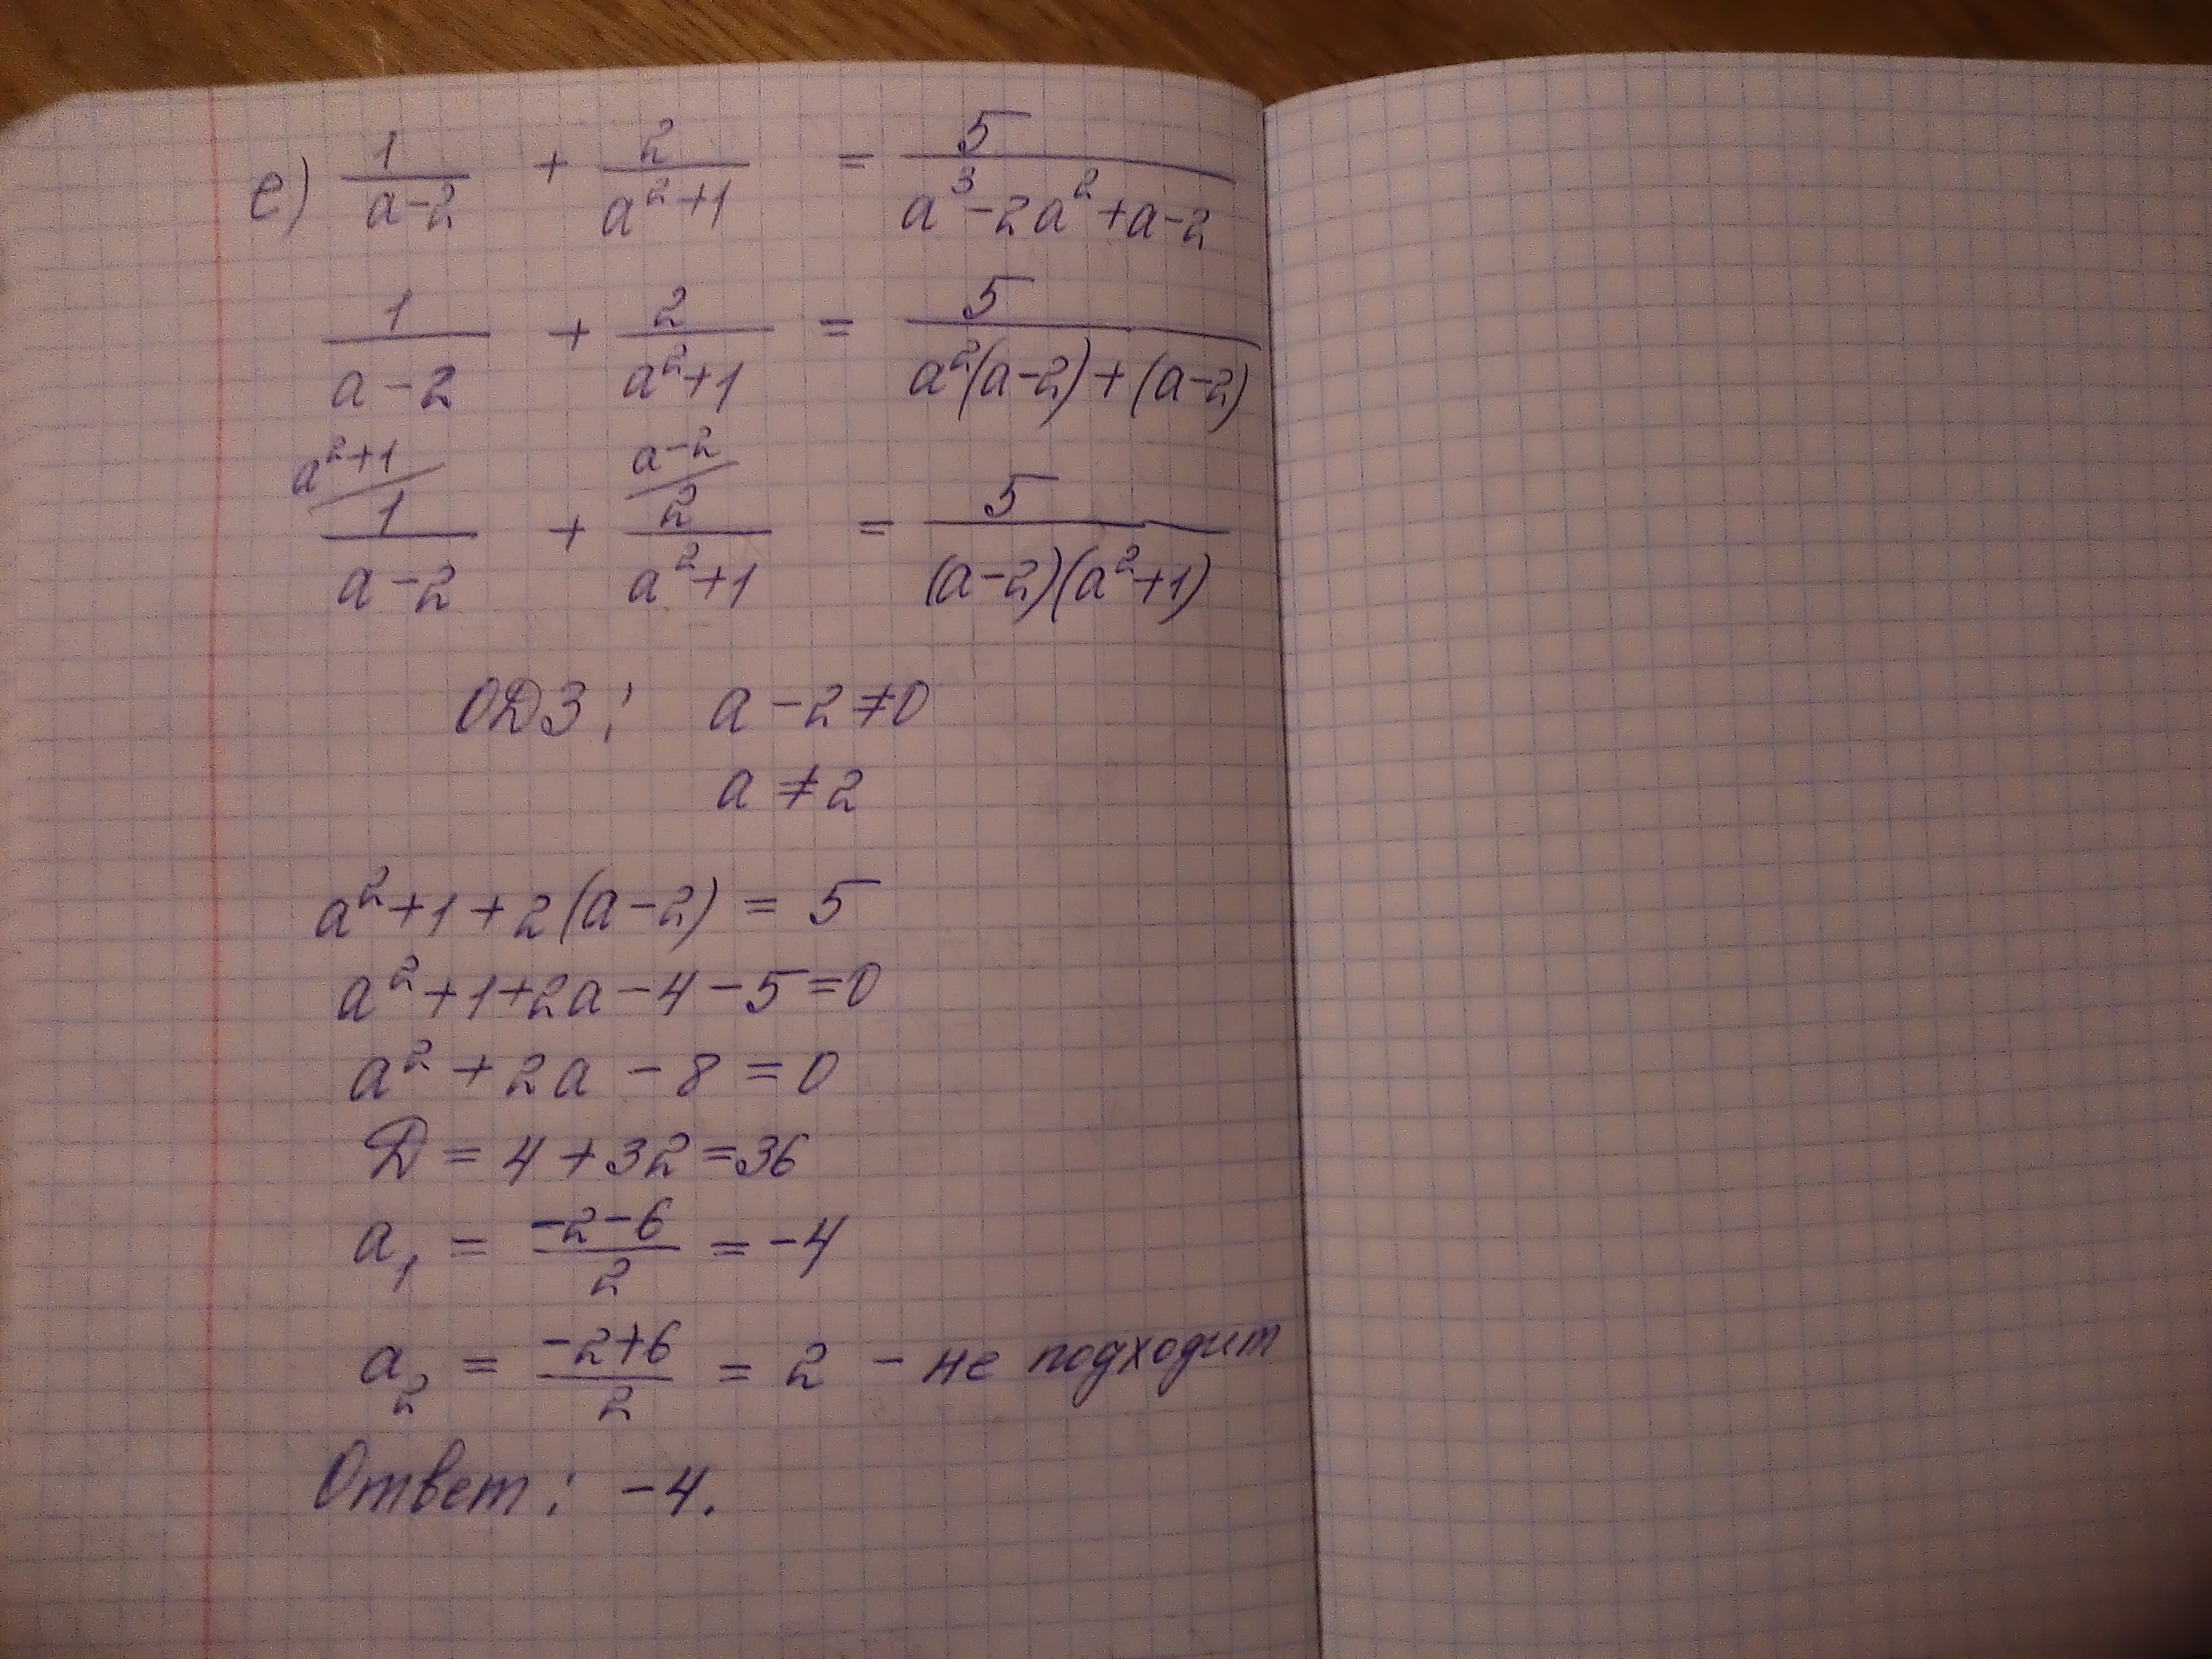 е) 1/(a-2) + 2/(a²+1) = 5/(a³-2a²+a-2)
1/(a-2) + 2/(a²+1) = 5/(a²(a-2)+(a-2))
a²+1/ 1/(a-2) + a-2/ 2/(a²+1) = 5/((a-2)(a²+1))
ОДЗ: a-2≠0
a≠2
a²+1+2(a-2) = 5
a²+1+2a-4-5=0
a²+2a-8=0
Д=4+32=36
a₁ = (-2-6)/2 = -4
a₂ = (-2+6)/2 = 2 - не подходит
Ответ: -4.